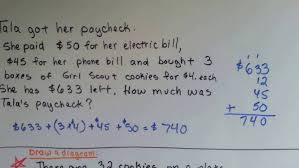 Tala got her paycheck.
She paid $50 for her electric bill,
$45 for her phone bill and bought 3
boxes of Girl Scout cookies for $4. each
She has $633 left. How much was
Tala's paycheck?
$633 + (3×4) + $45 + $50 = $740
$633
12
45
+ 50
740
Draw a diagram:
There are 32 cookies on a plate